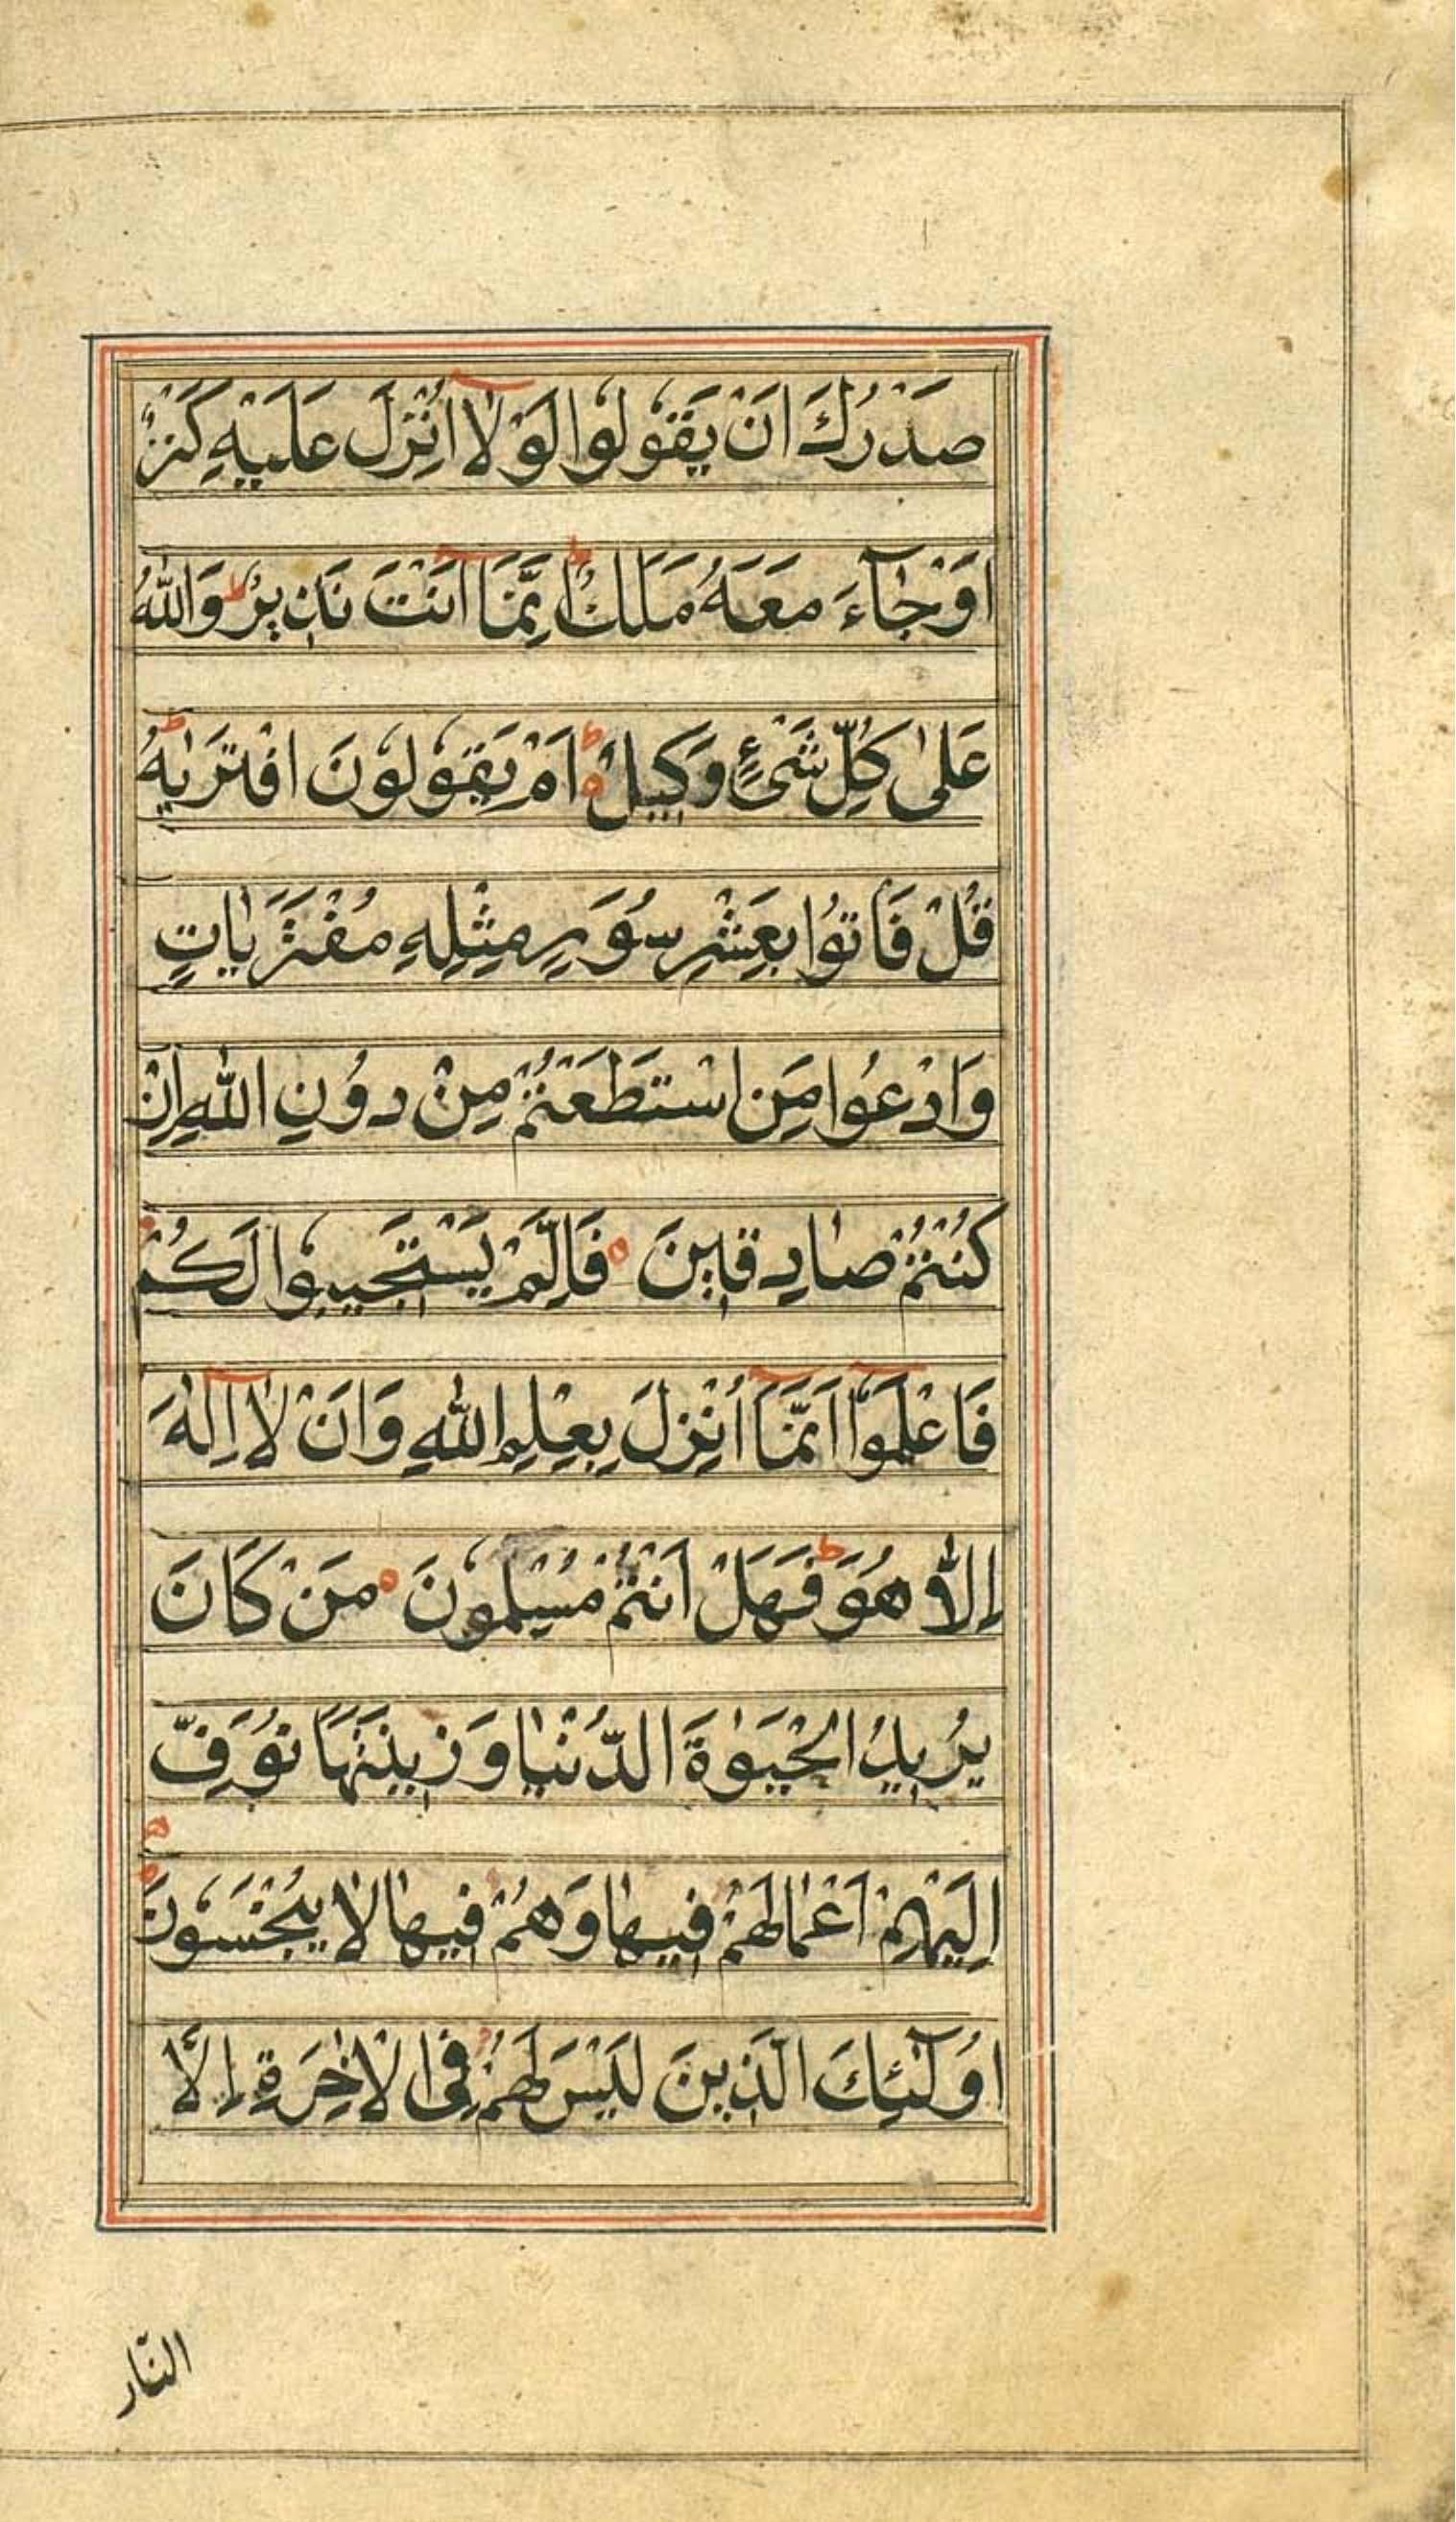 صَدْرُكَ اَنْ يَقُولُوا لَوْلَا اُنْزِلَ عَلَيْهِ كَنْزٌ
اَوْ جَآءَ مَعَهُ مَلَكٌ ط اِنَّمَا اَنْتَ نَذِيرٌ ط وَاللّٰهُ
عَلٰى كُلِّ شَىْءٍ وَكِيلٌ ط اَمْ يَقُولُونَ افْتَرٰيهُ ط
قُلْ فَاتُوا بِعَشْرِ سُوَرٍ مِثْلِهِ مُفْتَرَيَاتٍ
وَادْعُوا مَنِ اسْتَطَعْتُمْ مِنْ دُونِ اللّٰهِ اِنْ
كُنْتُمْ صَادِقِينَ ه فَاِلَّمْ يَسْتَجِيبُوا لَكُمْ
فَاعْلَمُوٓا اَنَّمَآ اُنْزِلَ بِعِلْمِ اللّٰهِ وَاَنْ لَآ اِلٰهَ
اِلَّا هُوَ ط فَهَلْ اَنْتُمْ مُسْلِمُونَ ه مَنْ كَانَ
يُرِيدُ الْحَيَوٰةَ الدُّنْيَا وَزِينَتَهَا نُوَفِّ
اِلَيْهِمْ اَعْمَالَهُمْ فِيهَا وَهُمْ فِيهَا لَا يُبْخَسُونَ
اُولٰٓئِكَ الَّذِينَ لَيْسَ لَهُمْ فِى الْاٰخِرَةِ اِلَّا
النَّار